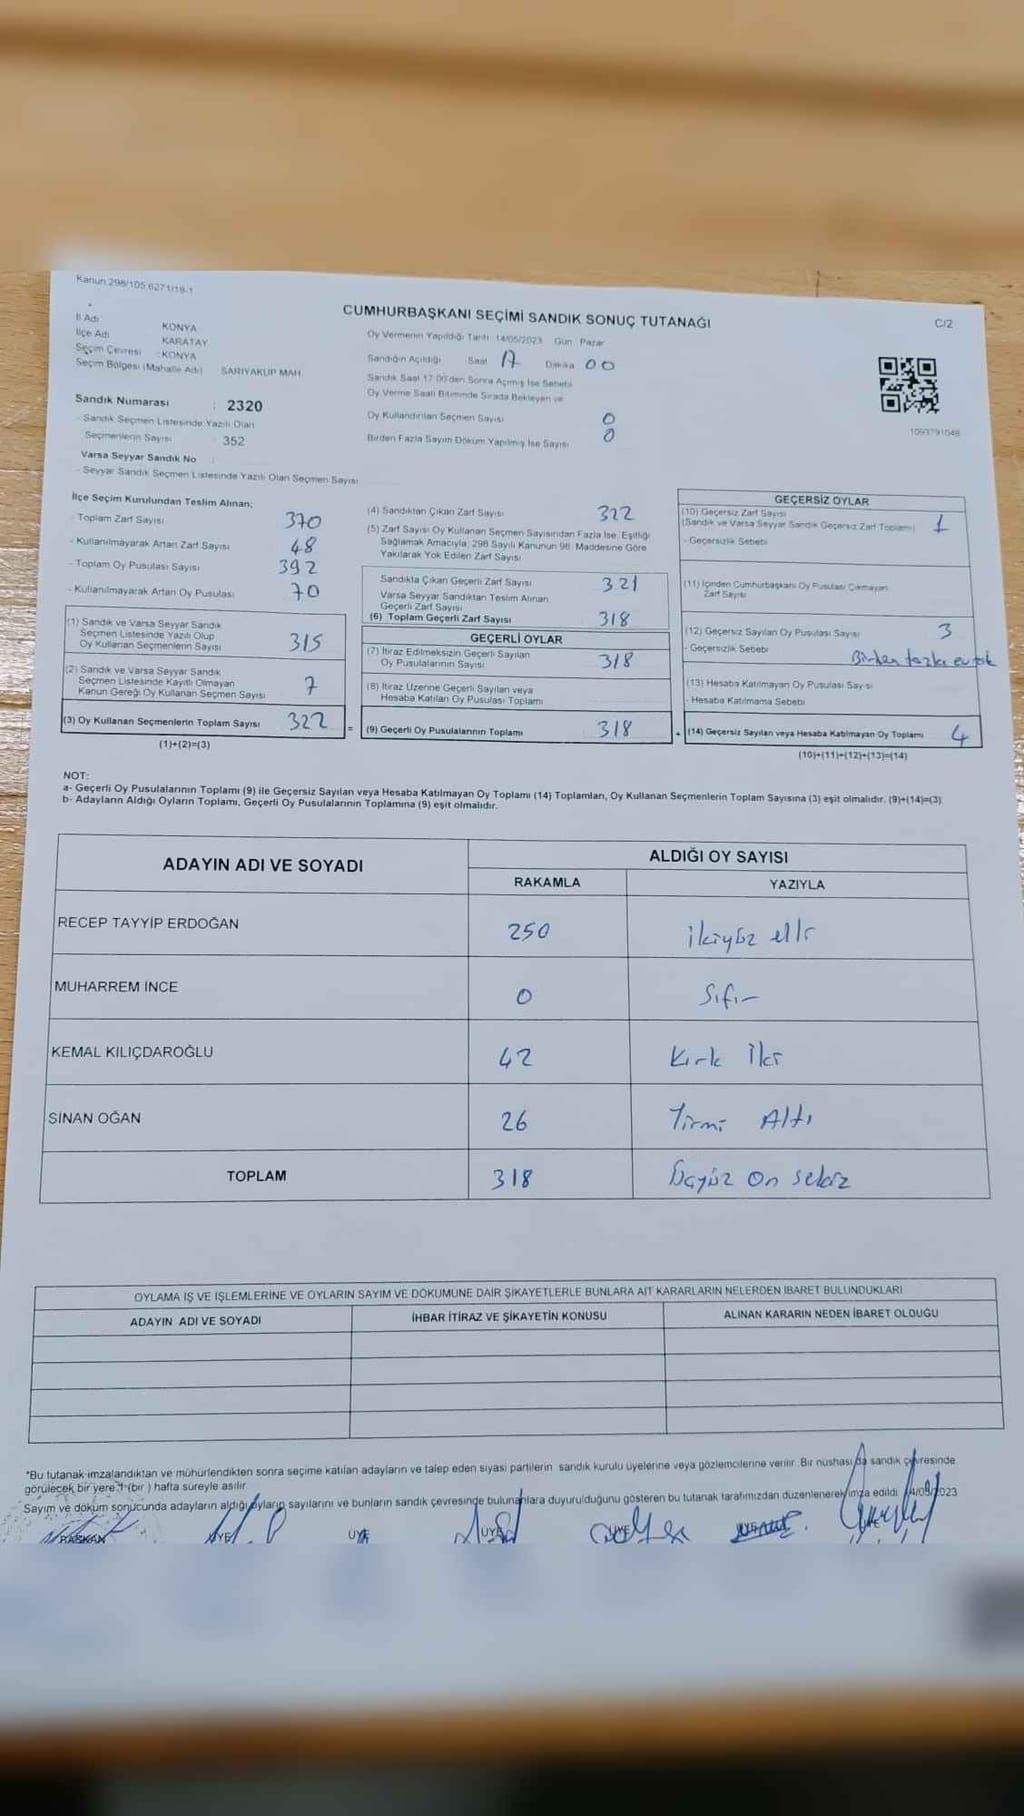 Kanun:298/105,6271/18-1
CUMHURBAŞKANI SEÇİMİ SANDIK SONUÇ TUTANAĞI
C/2
İl Adı KONYA
İlçe Adı KARATAY
Seçim Çevresi : KONYA
Seçim Bölgesi (Mahalle Adı) SARIYAKUP MAH.
Sandık Numarası : 2320
- Sandık Seçmen Listesinde Yazılı Olan
Seçmenlerin Sayısı : 352
Varsa Seyyar Sandık No :
- Seyyar Sandık Seçmen Listesinde Yazılı Olan Seçmen Sayısı
Oy Vermenin Yapıldığı Tarih 14/05/2023 Gün Pazar
Sandığın Açıldığı Saat 17 Dakika 00
Sandık Saat 17.00'den Sonra Açımış İse Sebebi
Oy Verme Saati Bitiminde Sırada Bekleyen ve
Oy Kullandırılan Seçmen Sayısı 0
Birden Fazla Sayım Döküm Yapılmış İse Sayısı 0
1093791048
İlçe Seçim Kurulundan Teslim Alınan;
- Toplam Zarf Sayısı 370
- Kullanılmayarak Artan Zarf Sayısı 48
- Toplam Oy Pusulası Sayısı 392
- Kullanılmayarak Artan Oy Pusulası 70
(1) Sandık ve Varsa Seyyar Sandık
Seçmen Listesinde Yazılı Olup
Oy Kullanan Seçmenlerin Sayısı 315
(2) Sandık ve Varsa Seyyar Sandık
Seçmen Listesinde Kayıtlı Olmayan
Kanun Gereği Oy Kullanan Seçmen Sayısı 7
(3) Oy Kullanan Seçmenlerin Toplam Sayısı 322 =
(1)+(2)=(3)
(4) Sandıktan Çıkan Zarf Sayısı 322
(5) Zarf Sayısı Oy Kullanan Seçmen Sayısından Fazla İse, Eşitliği
Sağlamak Amacıyla, 298 Sayılı Kanunun 98. Maddesine Göre
Yakılarak Yok Edilen Zarf Sayısı
Sandıkta Çıkan Geçerli Zarf Sayısı 321
Varsa Seyyar Sandıktan Teslim Alınan
Geçerli Zarf Sayısı
(6) Toplam Geçerli Zarf Sayısı 318
GEÇERLİ OYLAR
(7) İtiraz Edilmeksizin Geçerli Sayılan
Oy Pusulalarının Sayısı 318
(8) İtiraz Üzerine Geçerli Sayılan veya
Hesaba Katılan Oy Pusulası Toplamı
(9) Geçerli Oy Pusulalarının Toplamı 318 +
GEÇERSİZ OYLAR
(10) Geçersiz Zarf Sayısı
(Sandık ve Varsa Seyyar Sandık Geçersiz Zarf Toplamı) 1
- Geçersizlik Sebebi
(11) İçinden Cumhurbaşkanı Oy Pusulası Çıkmayan
Zarf Sayısı
(12) Geçersiz Sayılan Oy Pusulası Sayısı 3
- Geçersizlik Sebebi Birden fazla
(13) Hesaba Katılmayan Oy Pusulası Sayısı
- Hesaba Katılmama Sebebi
(14) Geçersiz Sayılan veya Hesaba Katılmayan Oy Toplamı 4
(10)+(11)+(12)+(13)=(14)
NOT:
a- Geçerli Oy Pusulalarının Toplamı (9) ile Geçersiz Sayılan veya Hesaba Katılmayan Oy Toplamı (14) Toplamları, Oy Kullanan Seçmenlerin Toplam Sayısına (3) eşit olmalıdır. (9)+(14)=(3)
b- Adayların Aldığı Oyların Toplamı, Geçerli Oy Pusulalarının Toplamına (9) eşit olmalıdır.
ADAYIN ADI VE SOYADI
ALDIĞI OY SAYISI
RAKAMLA YAZIYLA
RECEP TAYYİP ERDOĞAN 250 ikiyüz elli
MUHARREM İNCE 0 Sıfır
KEMAL KILIÇDAROĞLU 42 Kırk İki
SİNAN OĞAN 26 Yirmi Altı
TOPLAM 318 Üçyüz On sekiz
OYLAMA İŞ VE İŞLEMLERİNE VE OYLARIN SAYIM VE DÖKÜMÜNE DAİR ŞİKAYETLERLE BUNLARA AİT KARARLARIN NELERDEN İBARET BULUNDUKLARI
ADAYIN ADI VE SOYADI İHBAR İTİRAZ VE ŞİKAYETİN KONUSU ALINAN KARARIN NEDEN İBARET OLDUĞU
*Bu tutanak imzalandıktan ve mühürlendikten sonra seçime katılan adayların ve talep eden siyasi partilerin sandık kurulu üyelerine veya gözlemcilerine verilir. Bir nüshası da sandık çevresinde
görülecek bir yere 1 (bir ) hafta süreyle asılır
Sayım ve döküm sonucunda adayların aldığı oyların sayılarını ve bunların sandık çevresinde bulunanlara duyurulduğunu gösteren bu tutanak tarafımızdan düzenlenerek imza edildi. 14/05/2023
BAŞKAN ÜYE ÜYE ÜYE ÜYE